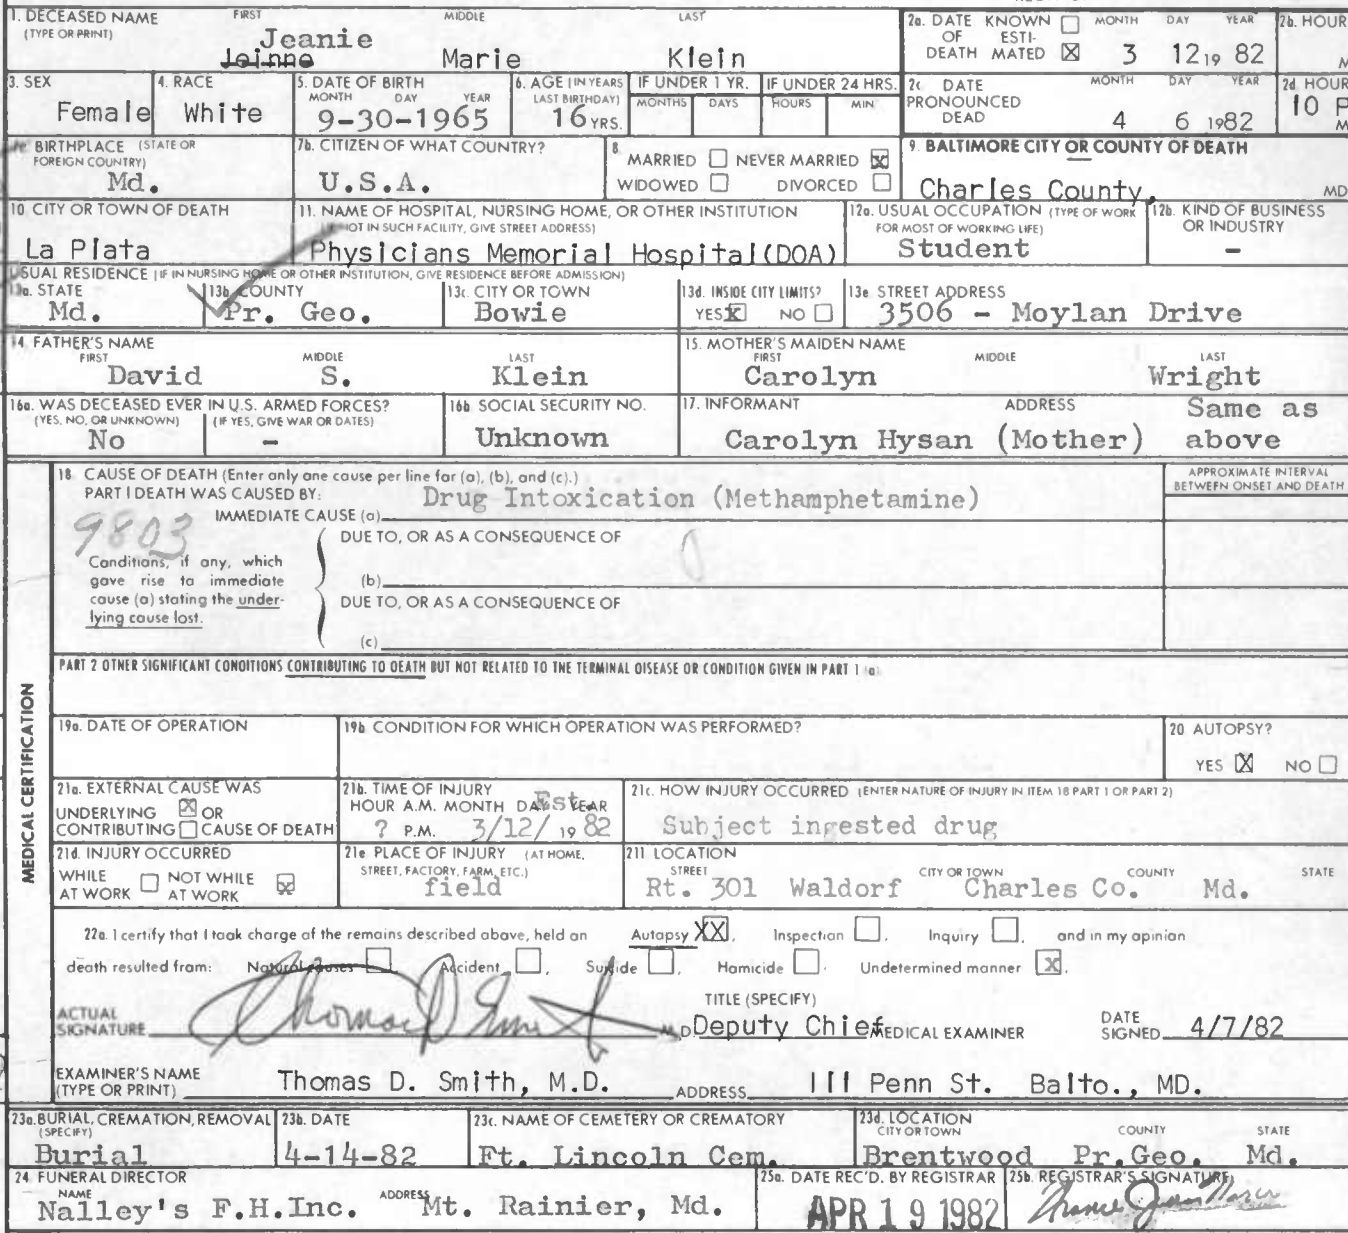 1. DECEASED NAME FIRST MIDDLE LAST
(TYPE OR PRINT)
Jeanie
Jeinne Marie Klein
2a. DATE KNOWN ☐ MONTH DAY YEAR
OF ESTI-
DEATH MATED ☒ 3 12 19 82
2b. HOUR
M
3. SEX
Female
4. RACE
White
5. DATE OF BIRTH
MONTH DAY YEAR
9-30-1965
6. AGE (IN YEARS
LAST BIRTHDAY)
16 YRS.
IF UNDER 1 YR.
MONTHS DAYS
IF UNDER 24 HRS.
HOURS MIN
2c DATE MONTH DAY YEAR
PRONOUNCED
DEAD 4 6 1982
2d HOUR
10 P
M
BIRTHPLACE (STATE OR
FOREIGN COUNTRY)
Md.
7b. CITIZEN OF WHAT COUNTRY?
U.S.A.
8.
MARRIED ☐ NEVER MARRIED ☒
WIDOWED ☐ DIVORCED ☐
9. BALTIMORE CITY OR COUNTY OF DEATH
Charles County, MD
10. CITY OR TOWN OF DEATH
La Plata
11. NAME OF HOSPITAL, NURSING HOME, OR OTHER INSTITUTION
NOT IN SUCH FACILITY, GIVE STREET ADDRESS)
Physicians Memorial Hospital(DOA)
12a. USUAL OCCUPATION (TYPE OF WORK
FOR MOST OF WORKING LIFE)
Student
12b. KIND OF BUSINESS
OR INDUSTRY
-
USUAL RESIDENCE (IF IN NURSING HOME OR OTHER INSTITUTION, GIVE RESIDENCE BEFORE ADMISSION)
13a. STATE
Md.
13b. COUNTY
Pr. Geo.
13c. CITY OR TOWN
Bowie
13d. INSIDE CITY LIMITS?
YES ☒ NO ☐
13e STREET ADDRESS
3506 - Moylan Drive
14. FATHER'S NAME
FIRST MIDDLE LAST
David S. Klein
15. MOTHER'S MAIDEN NAME
FIRST MIDDLE LAST
Carolyn Wright
16a. WAS DECEASED EVER IN U.S. ARMED FORCES?
(YES, NO, OR UNKNOWN) (IF YES, GIVE WAR OR DATES)
No -
16b SOCIAL SECURITY NO.
Unknown
17. INFORMANT ADDRESS Same as
Carolyn Hysan (Mother) above
MEDICAL CERTIFICATION
18 CAUSE OF DEATH (Enter only one cause per line for (a), (b), and (c).)
PART I DEATH WAS CAUSED BY: Drug Intoxication (Methamphetamine)
IMMEDIATE CAUSE (a)
APPROXIMATE INTERVAL
BETWEEN ONSET AND DEATH
9803
DUE TO, OR AS A CONSEQUENCE OF
Conditions, if any, which
gave rise to immediate
cause (a) stating the under-
lying cause lost.
(b)
DUE TO, OR AS A CONSEQUENCE OF
(c)
PART 2 OTHER SIGNIFICANT CONDITIONS CONTRIBUTING TO DEATH BUT NOT RELATED TO THE TERMINAL DISEASE OR CONDITION GIVEN IN PART 1 (a)
19a. DATE OF OPERATION
19b CONDITION FOR WHICH OPERATION WAS PERFORMED?
20 AUTOPSY?
YES ☒ NO ☐
21a. EXTERNAL CAUSE WAS
UNDERLYING ☒ OR
CONTRIBUTING ☐ CAUSE OF DEATH
21b. TIME OF INJURY
HOUR A.M. MONTH DAY YEAR
Est.
? P.M. 3/12/ 19 82
21c. HOW INJURY OCCURRED (ENTER NATURE OF INJURY IN ITEM 18 PART 1 OR PART 2)
Subject ingested drug
21d. INJURY OCCURRED
WHILE ☐ NOT WHILE ☒
AT WORK AT WORK
21e PLACE OF INJURY (AT HOME,
STREET, FACTORY, FARM, ETC.)
field
21f LOCATION
STREET CITY OR TOWN COUNTY STATE
Rt. 301 Waldorf Charles Co. Md.
22a. I certify that I took charge of the remains described above, held an Autopsy XX, Inspection ☐, Inquiry ☐, and in my opinion
death resulted from: Natural causes ☐, Accident ☐, Suicide ☐, Homicide ☐. Undetermined manner ☒.
ACTUAL
SIGNATURE Thomas D. Smith M.D.
TITLE (SPECIFY)
Deputy Chief MEDICAL EXAMINER
DATE
SIGNED 4/7/82
EXAMINER'S NAME
(TYPE OR PRINT) Thomas D. Smith, M.D. ADDRESS 111 Penn St. Balto., MD.
23a. BURIAL, CREMATION, REMOVAL
(SPECIFY)
Burial
23b. DATE
4-14-82
23c. NAME OF CEMETERY OR CREMATORY
Ft. Lincoln Cem.
23d. LOCATION
CITY OR TOWN COUNTY STATE
Brentwood Pr.Geo. Md.
24 FUNERAL DIRECTOR
NAME ADDRESS
Nalley's F.H.Inc. Mt. Rainier, Md.
25a. DATE REC'D. BY REGISTRAR
APR 19 1982
25b. REGISTRAR'S SIGNATURE